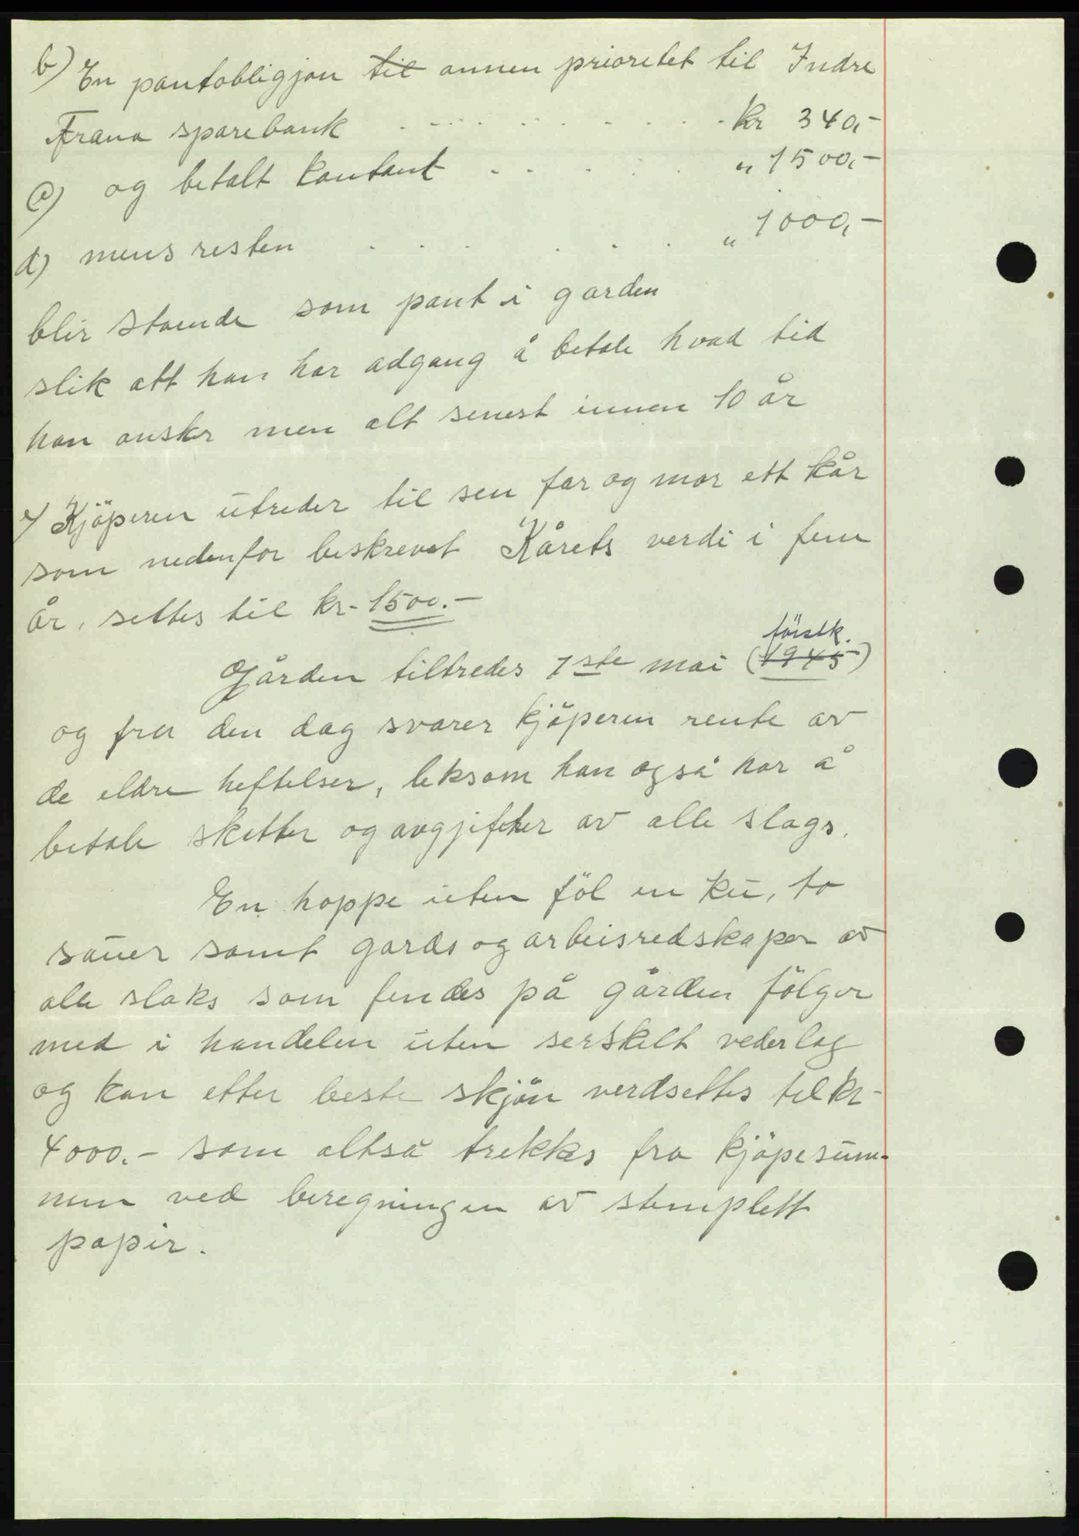 b) En pantobligjon ~~til~~ annen prioritet til Indre
Frana sparebank . . . . . . . . . kr 340,-
c) og betalt kontant . . . . . " 1500,-
d) mens resten . . . . . . " 1000,-
blir stående som pant i garden
slik att han har adgang å betale hvad tid
han ønsker men alt senest innen 10 år
e) Kjöperen utreder til sen far og mor ett kår
som nedenfor beskrevet Kårets verdi i fem
år, settes til kr- 1500.-
Gården tiltredes 1ste mai (~~1945~~)
og fra den dag svarer kjöperen rente av
de eldre heftelser, leksom han også har å
betale skatter og avgjifter av alle slags.
En hoppe uten föl en ku, to
sauer samt gards og arbeisredskaper av
alle slaks som findes på gården fölger
med i handelen uten serskilt vederlag
og kan etter beste skjön verdsettes til kr-
4000.- som altså trekkes fra kjöpesum-
men ved beregningen av stemplett
papir.